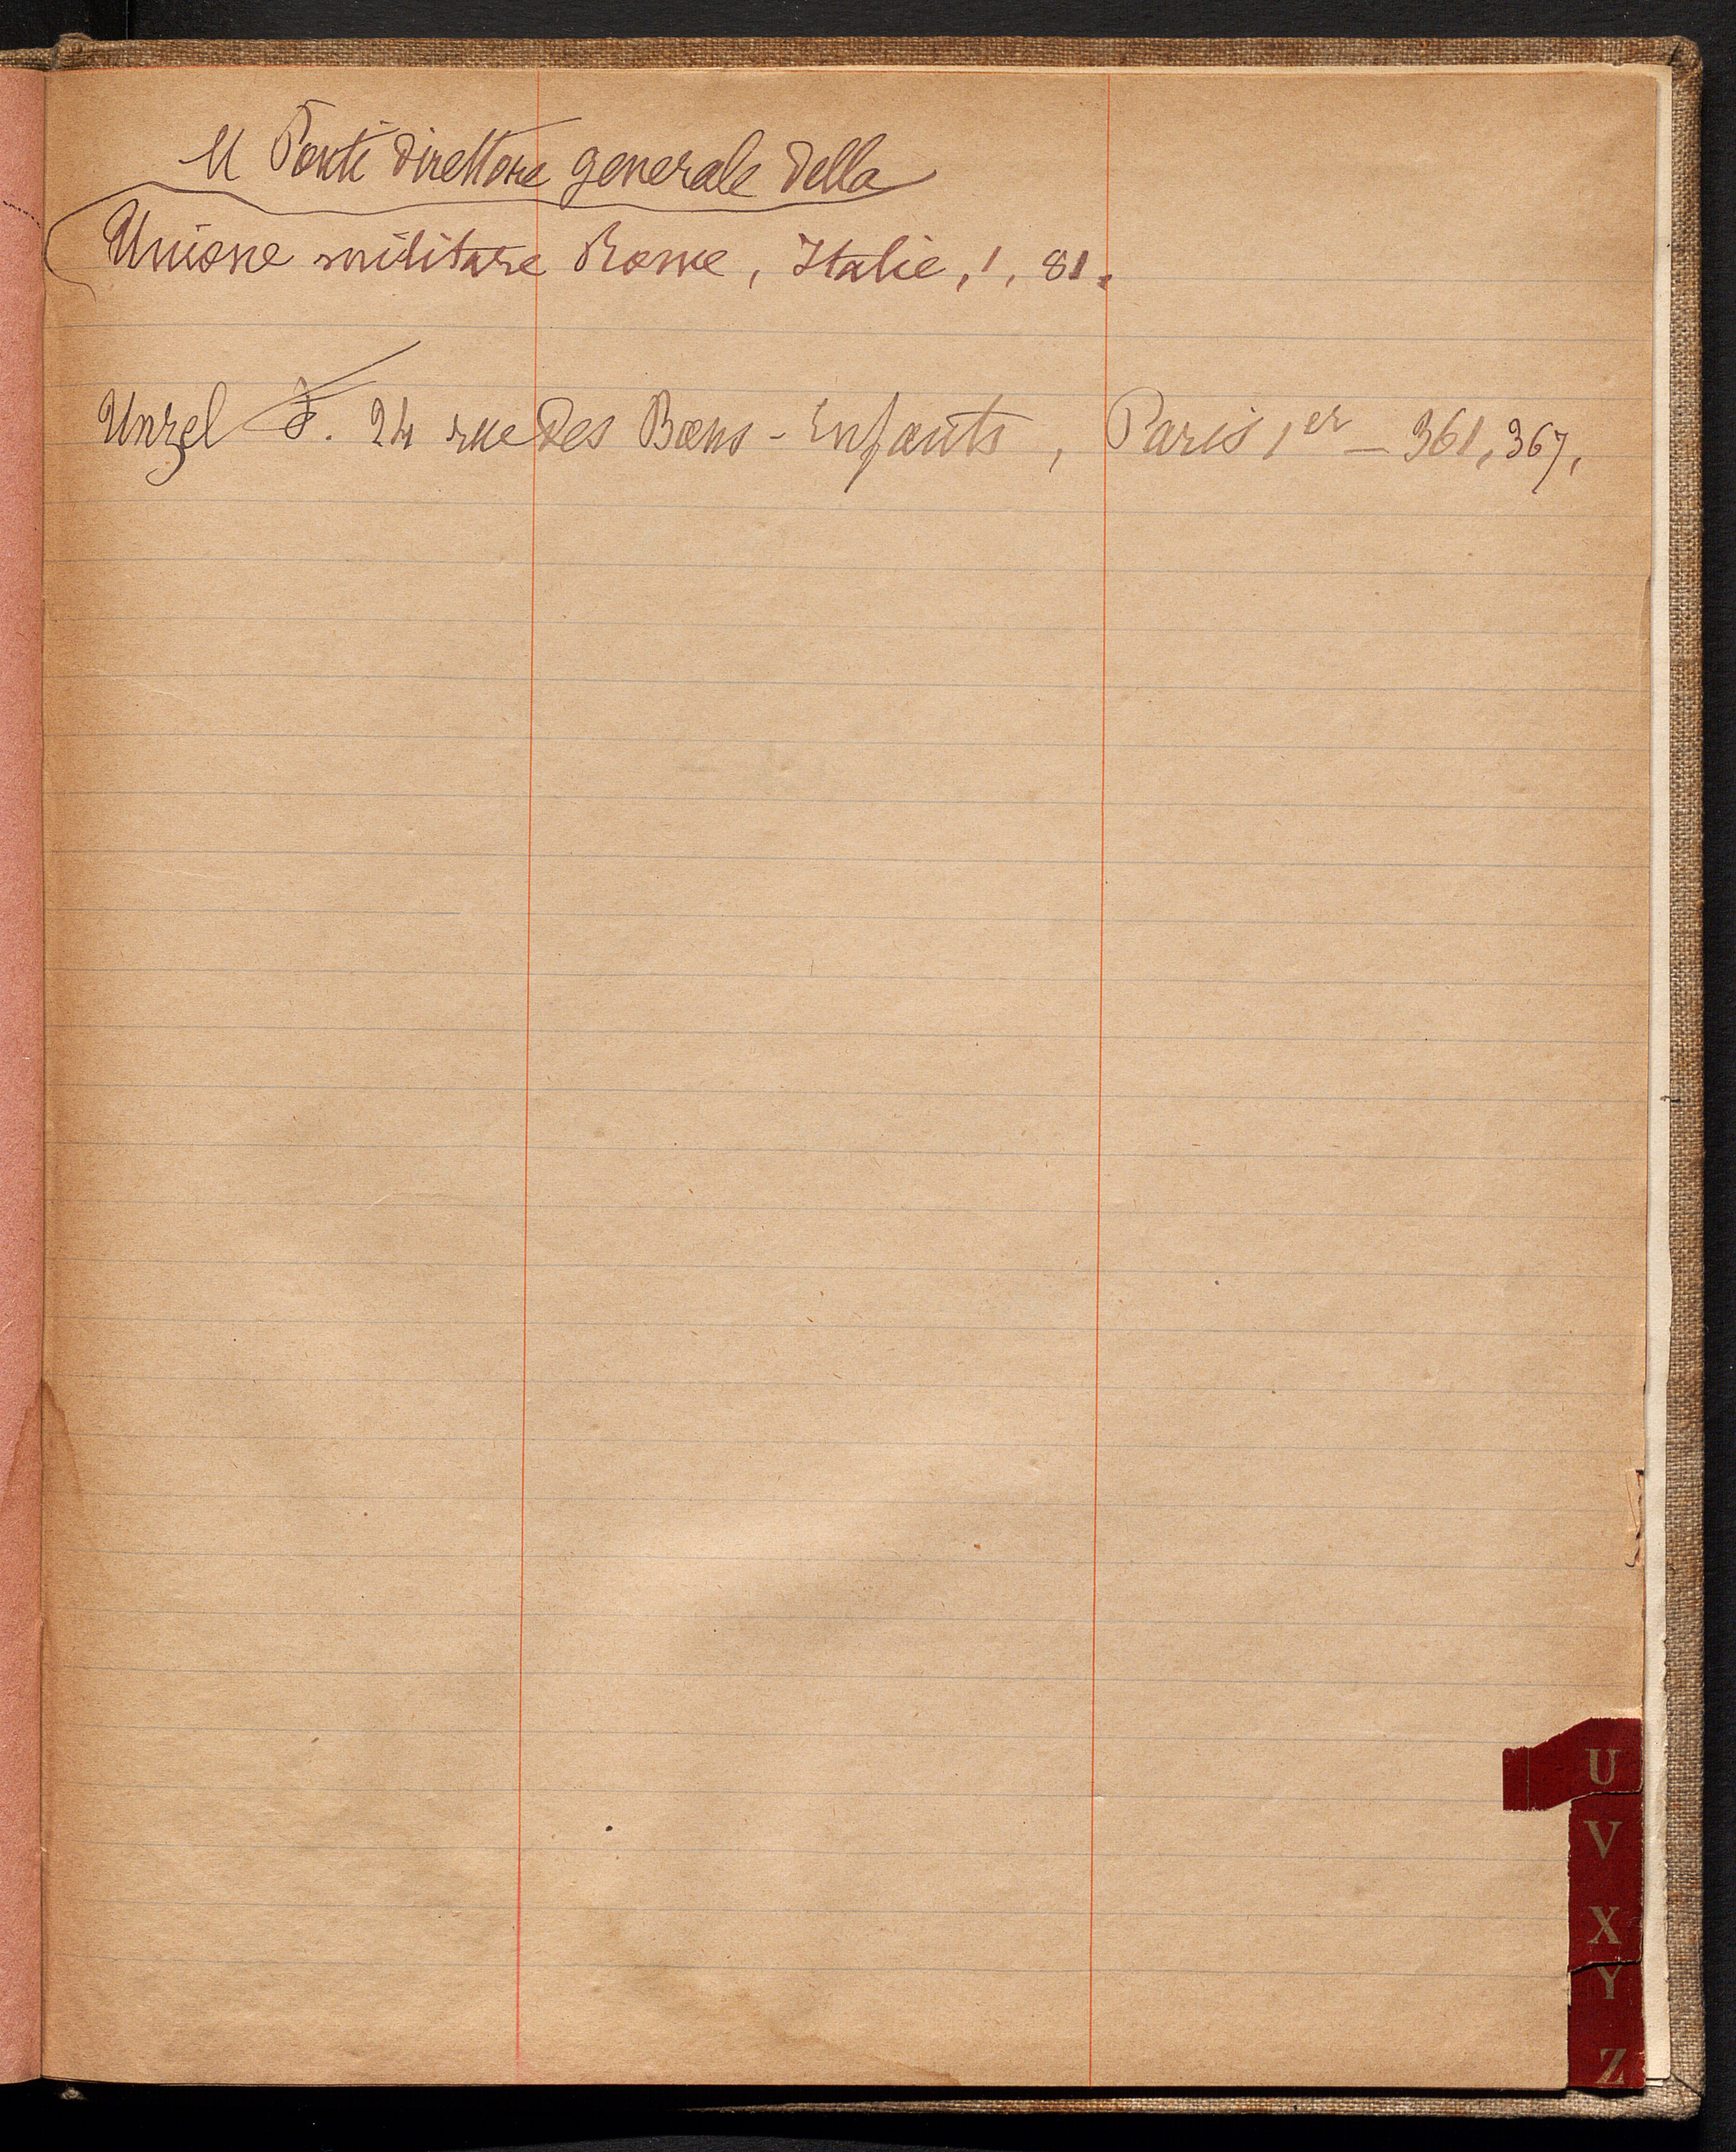 M Ponti direttore generale della
Unione militare Rome, Italie, 1, 81.
Unzel F. 24 rue des Bons-Enfants, Paris 1er — 361, 367,
U
V
X
Y
Z